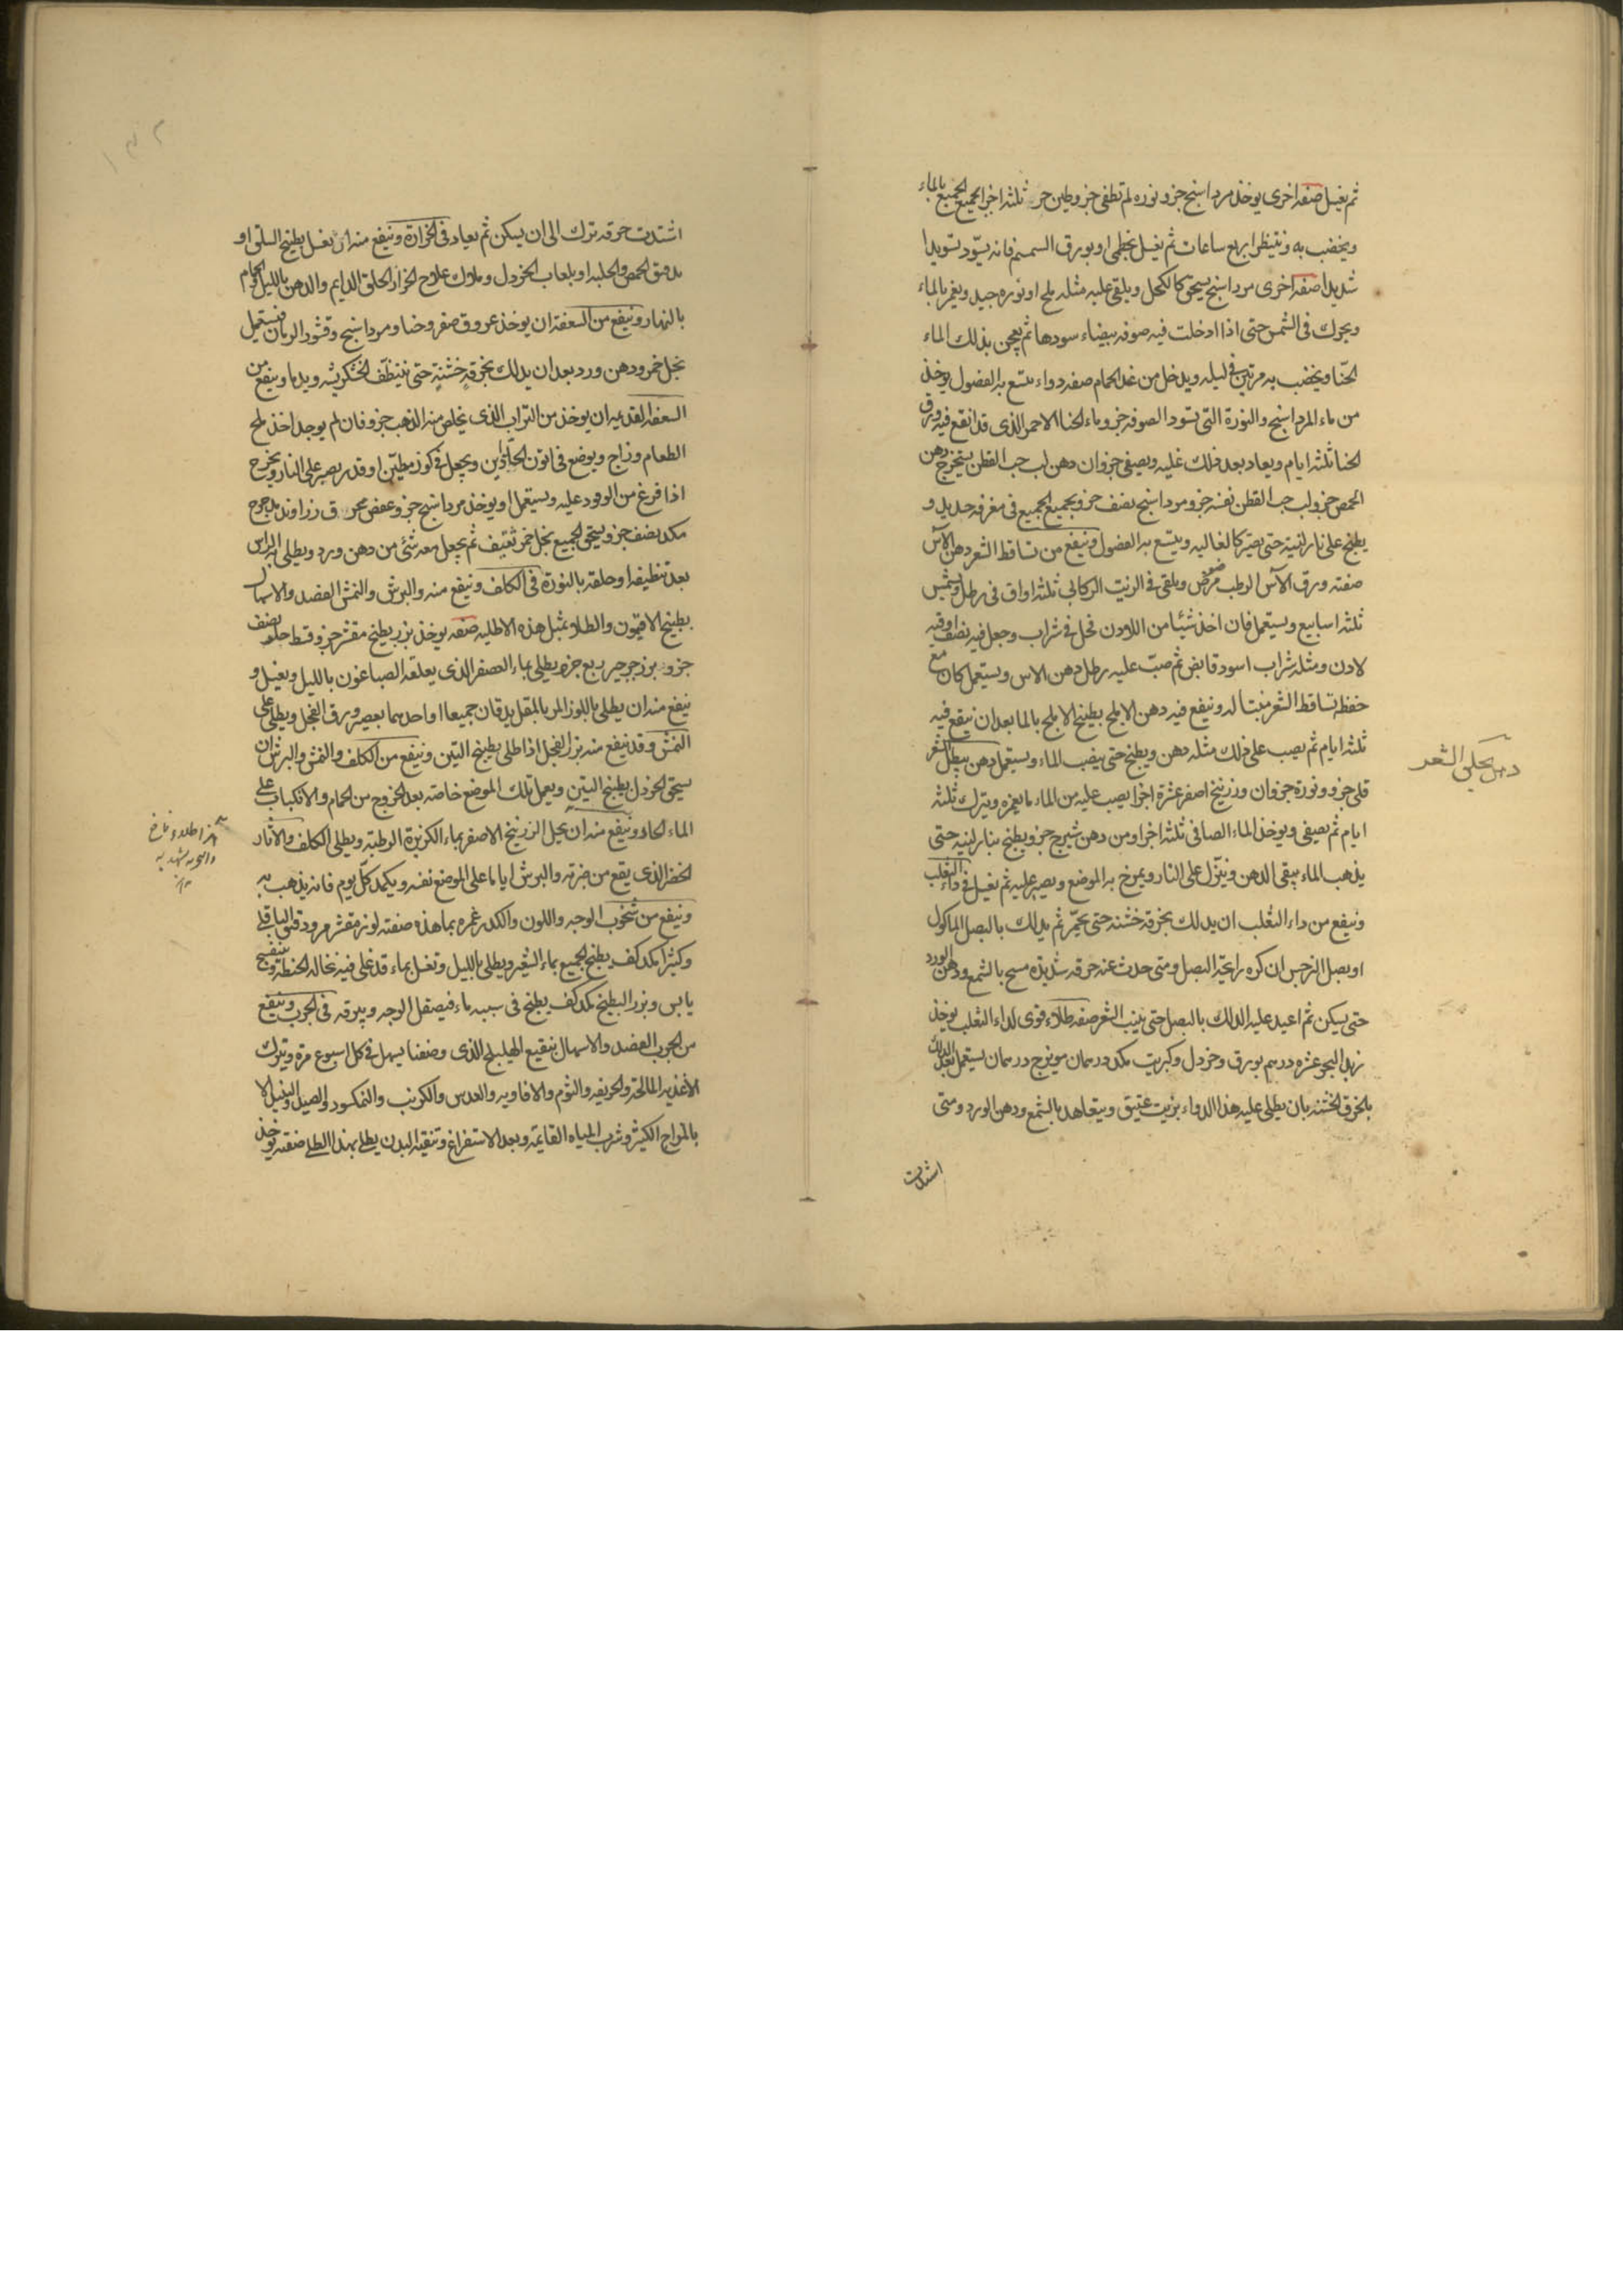 ثم يغسل صفة اخرى يوخذ مرداسنج جزو نوره لم تطفى جزو طين حر ثلثة اجزا لجميع الجميع بالماء
ويخضب به وينتظر اربع ساعات ثم يغسل بخطمى او بورق السمسم فانه يسود تسويدا
شديدا صفة اخرى مرداسنج يسحق كالكحل ويلقى عليه مثله ملح او نوره جيد ويغمر بالماء
ويحرك فى الشمس حتى اذا ادخلت فيه صوفه بيضاء سودها ثم يعجن بذلك الماء
الحنا ويخضب به مرتين فى ليله ويدخل من غد الحمام صفه دواء يتتبع به الفضول يوخذ
من ماء المرداسنج والنورة التى تسود الصوفه جزو ماء الحنا الاحمر الذى قد انقع فيه ورق
الحنا ثلثة ايام ويعاد بعد ذلك غليه ويصفى جزوان دهن لب حب القطن يستخرج دهن
الحمص جزو لب حب القطن نفسه جزو مرداسنج نصف جزو يجمع الجميع فى مغرفه حديد و
يطبخ على نار لينة حتى يصير كالغاليه ويتتبع به الفضول وينفع من تساقط الشعر دهن الآس
صفته ورق الآس الرطب مرضض ويلقى فى الزيت الركابى ثلثة اواق فى رطل ويشمس
ثلثة اسابيع ويستعمل فان اخذ شيئا من اللادن فحل فى شراب وجعل فيه نصف اوقيه
لادن ومثله شراب اسود قابض ثم صب عليه رطل دهن الاس ويستعمل كان مع
حفظه تساقط الشعر منبتا له وينفع فيه دهن الاملج يطبخ الاملج بالما بعد ان ينقع فيه
ثلثة ايام ثم يصب على ذلك مثله دهن ويطبخ حتى ينضب الماء ويستعمل دهن يبطل الشعر
قلى جزو ونورة جزوان وزرنيخ اصفر عشرة اجزا يصب عليه من الماء ما يغمره ويترك ثلثة
ايام ثم يصفى ويوخذ الماء الصافى ثلثة اجزا ومن دهن شيرج جزو ويطبخ بنار لينه حتى
يذهب الماء ويبقى الدهن وينزل على النار ويمرخ به الموضع ويصبر عليه ثم يغسل فى داء الثعلب
وينفع من داء الثعلب ان يدلك بخرقه خشنه حتى يحمر ثم يدلك بالبصل الماكول
او بصل النرجس ان كره رايحة البصل ومتى حدث عنه حرقه شديده مسح بالشمع ودهن الورد
حتى يسكن ثم اعيد عليه الدلك بالبصل حتى ينبت الشعر صفه طلاء قوى لداء الثعلب يوخذ
زبد البحر عشره درهم بورق وخردل وكبريت مكد درهمان مويزج درهمان يستعمل بعد الدلك
بالخرق الخشنه بان يطلى عليه هذا الدواء بزيت عتيق ويتعاهد بالشمع ودهن الورد ومتى
اشتدت
دهن يحلق الشعر
١٣٢
اشتدت حرقه ترك الى ان يسكن ثم يعاد فى الحزازة وينفع منه ان يغسل بطبيخ السلق او
بدقيق الحمص والحلبه او بلعاب الخردل وملاك علاج الحزاز الحلق الدايم والدهن بالليل والحمام
بالنهار وينفع من السعفة ان يوخذ عروق صفر وحنا ومرداسنج وقشور الرمان فيستعمل
بخل خمر ودهن ورد بعد ان يدلك بخرقة خشنة حتى يتنظف الخشكريشه ويدما وينفع من
السعفه القديمه ان يوخذ من التراب الذى يخلص منه الذهب جزو فان لم يوجد اخذ ملح
الطعام وزاج ويوضع فى اتون الحدادين ويجعل فى كوز مطين او قدر يصبر على النار ويخرج
اذا فرغ من الوقود عليه ويستعمل او يوخذ مرداسنج جزو عفص محرق زراوند مدحرج
مكد نصف جزو يسحق الجميع بخل خمر ثقيف ثم يجعل معه شئ من دهن ورد ويطلى به الراس
بعد تنظيفه او حلقه بالنورة فى الكلف وينفع منه والبرش والنمش الفصد والاسهال
بطبيخ الافتيمون والطلاء بمثل هذه الاطليه صفه يوخذ بزر بطيخ مقشر جزو قسط حلو نصف
جزو بزر جرجير ربع جزو يطلى بماء العصفر الذى يعلقه الصباغون بالليل ويغسل و
ينفع منه ان يطلى باللوز المر بالمقل يدقان جميعا او احدهما بعصير ورق الفجل ويطلى على
النمش وقد ينفع منه بزر الفجل اذا طلى بطبيخ التين وينفع من الكلف والنمش والبرش ان
يسحق الخردل بطبيخ التين ويعمل تلك الموضع خاصه بعد الخروج من الحمام والانكباب على
الماء الحار وينفع منه ان يحل الزرنيخ الاصفر بماء الكزبرة الرطبة ويطلى الكلف والاثار
الخضر الذى يقع من ضربة والبرش اياما على الموضع نفسه ويكمد كل يوم فانه يذهب به
وينفع من شحوب الوجه واللون والكدر غمره بماهذه صفته لوز مقشر مر ودقيق الباقلى
وكثيرا مكد كف يطبخ الجميع بماء الشعير ويطلى بالليل وتغسل بماء قد غلى فيه نخاله الحنطة وبنفسج
يابس وبزر البطيخ مكد كف يطبخ فى ماء فيصقل الوجه ويبرقه فى الجرب وينفع
من الجرب الفصد والاسهال بنقيع الهليلج الذى وصفنا يسهل فى كل اسبوع مرة ويترك
الاغذيه المالحة والحريفه والثوم والافاويه والعدس والكرنب والنمكسود والصيد والنبيذ الا
بالمزاج الكثير وشرب المياه القايمة وبعد الاستفراغ وتنقيه البدن يطلى بهذا الطلى صفته يوخذ